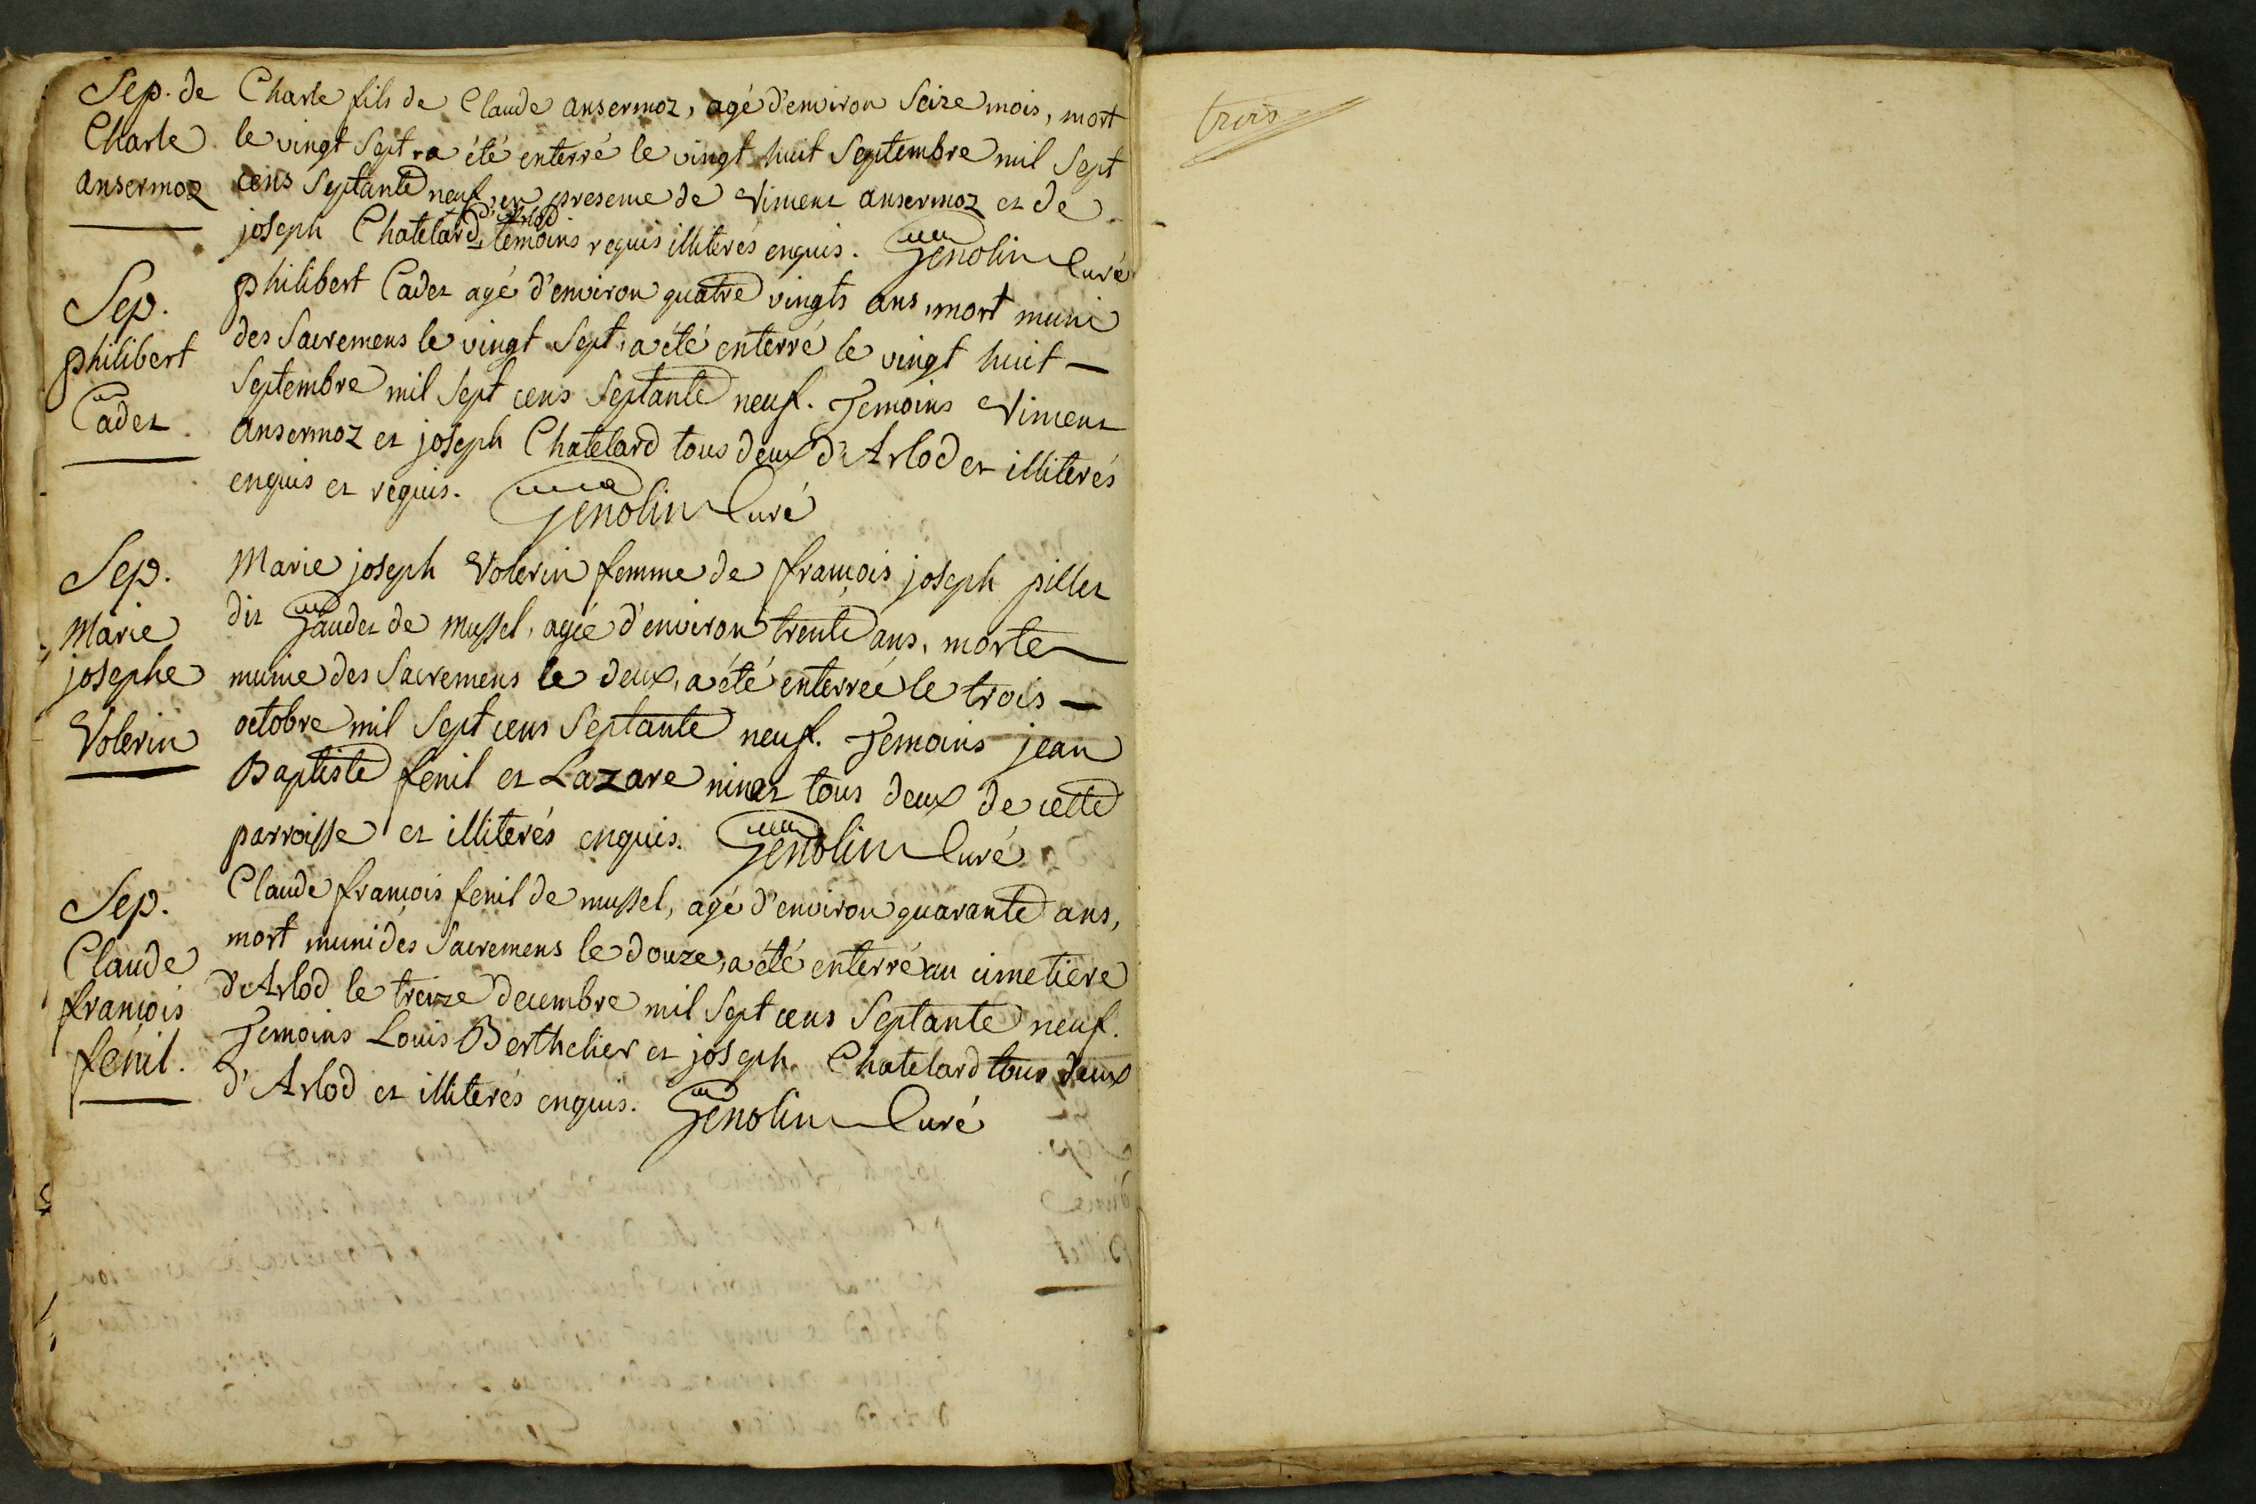 Sep. de
Charle
ansermoz
Charle fils de Claude ansermoz, agé d'environ Seize mois, mort
le vingt Sept, a été enterré le vingt huit Septembre mil Sept
cens Septante neuf, en presence de Vincent ansermoz et de
d'Arlod
joseph Chatelard, temoins requis illiterés enquis. Genolin Curé
Sep.
philibert
Cadet
philibert Cadet agé d'environ quatre vingts ans, mort muni
des Sacremens le vingt Sept, a été enterré le vingt huit —
Septembre mil Sept cens Septante neuf. Temoins Vincent
ansermoz et joseph Chatelard tous deux d'Arlod et illiterés
enquis et requis. Genolin Curé
Sep.
Marie
josephe
Volerin
Marie joseph Volerin femme de françois joseph pillet
dit Gaudet de mussel, agée d'environ trente ans, morte
munie des Sacremens le deux, a été enterrée le trois —
octobre mil Sept cens Septante neuf. Temoins jean
Baptiste fenil et Lazare ninet tous deux de cette
parroisse et illiterés enquis. Genolin Curé
Sep.
Claude
françois
fenil.
Claude françois fenil de mussel, agé d'environ quarante ans,
mort muni des Sacremens le douze, a été enterré au cimetiere
d'Arlod le treize decembre mil Sept cens Septante neuf.
Temoins Louis Berthelier et joseph Chatelard tous deux
d'Arlod et illiterés enquis. Genolin Curé
trois